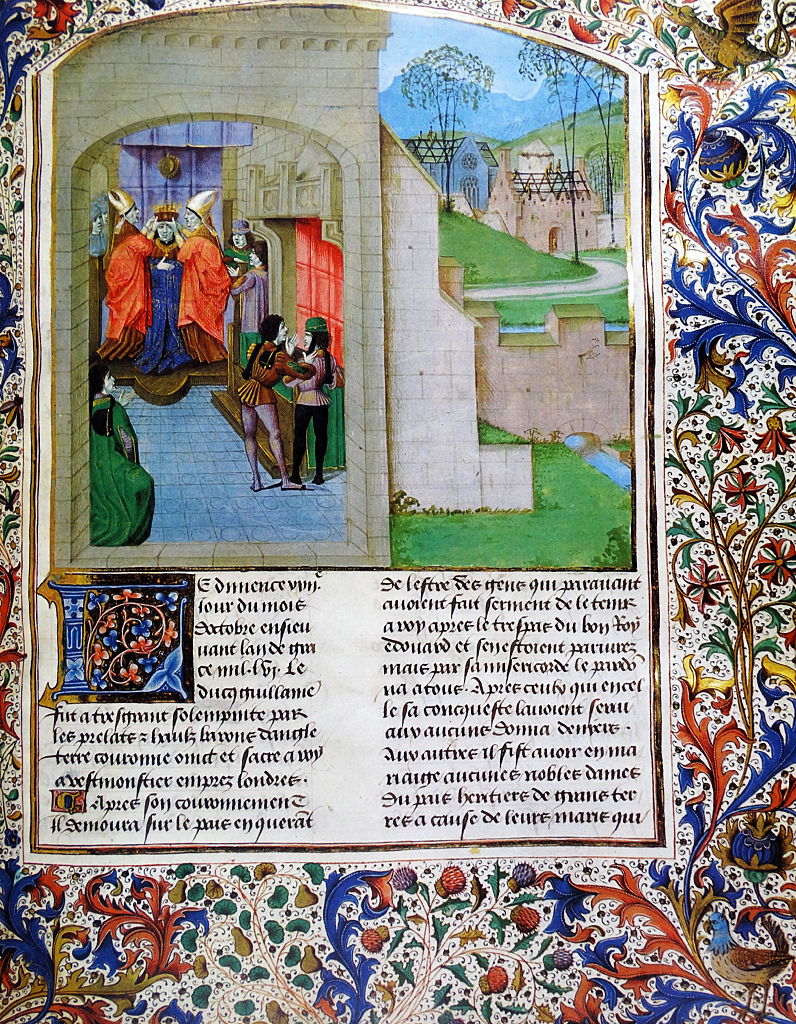 Le dimence xviijᵉ
Jour du mois
doctobre ensieu
uant lan de gra
ce mil.lvj. Le
ducq guillame
fut a tresgrant solempnite par
les prelats & haulz barons dangle
terre couronne oinct et sacre a roy
a Westmonstier emprez londres.
Apres son couronnement
Il demoura sur le pais en querant
de lestre des gens qui parauant
auoient fait serment de le tenir
a roy apres le trespas du bon Roy
edouard et sen estoient pariurez
mais par sa misericorde le pardo
na a tous. Apres ceulx qui en cel
le sa conqueste lauoient serui
aux aucuns donna deniers.
Aux autres il fist auoir en ma
riaige aucunes nobles dames
du pais heritieres de grans ter
res a cause de leurs maris qui